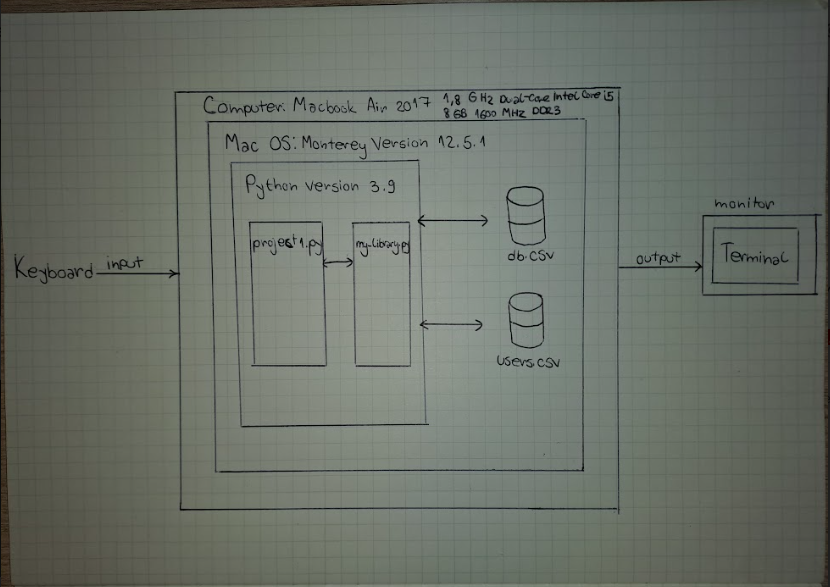 Computer: Macbook Air 2017
1,8 GHz Dual-Core Intel Core i5
8 GB 1600 MHz DDR3
Mac OS: Monterey Version 12.5.1
Python version 3.9
project1.py
my-library.py
db.csv
users.csv
Keyboard
input
output
monitor
Terminal